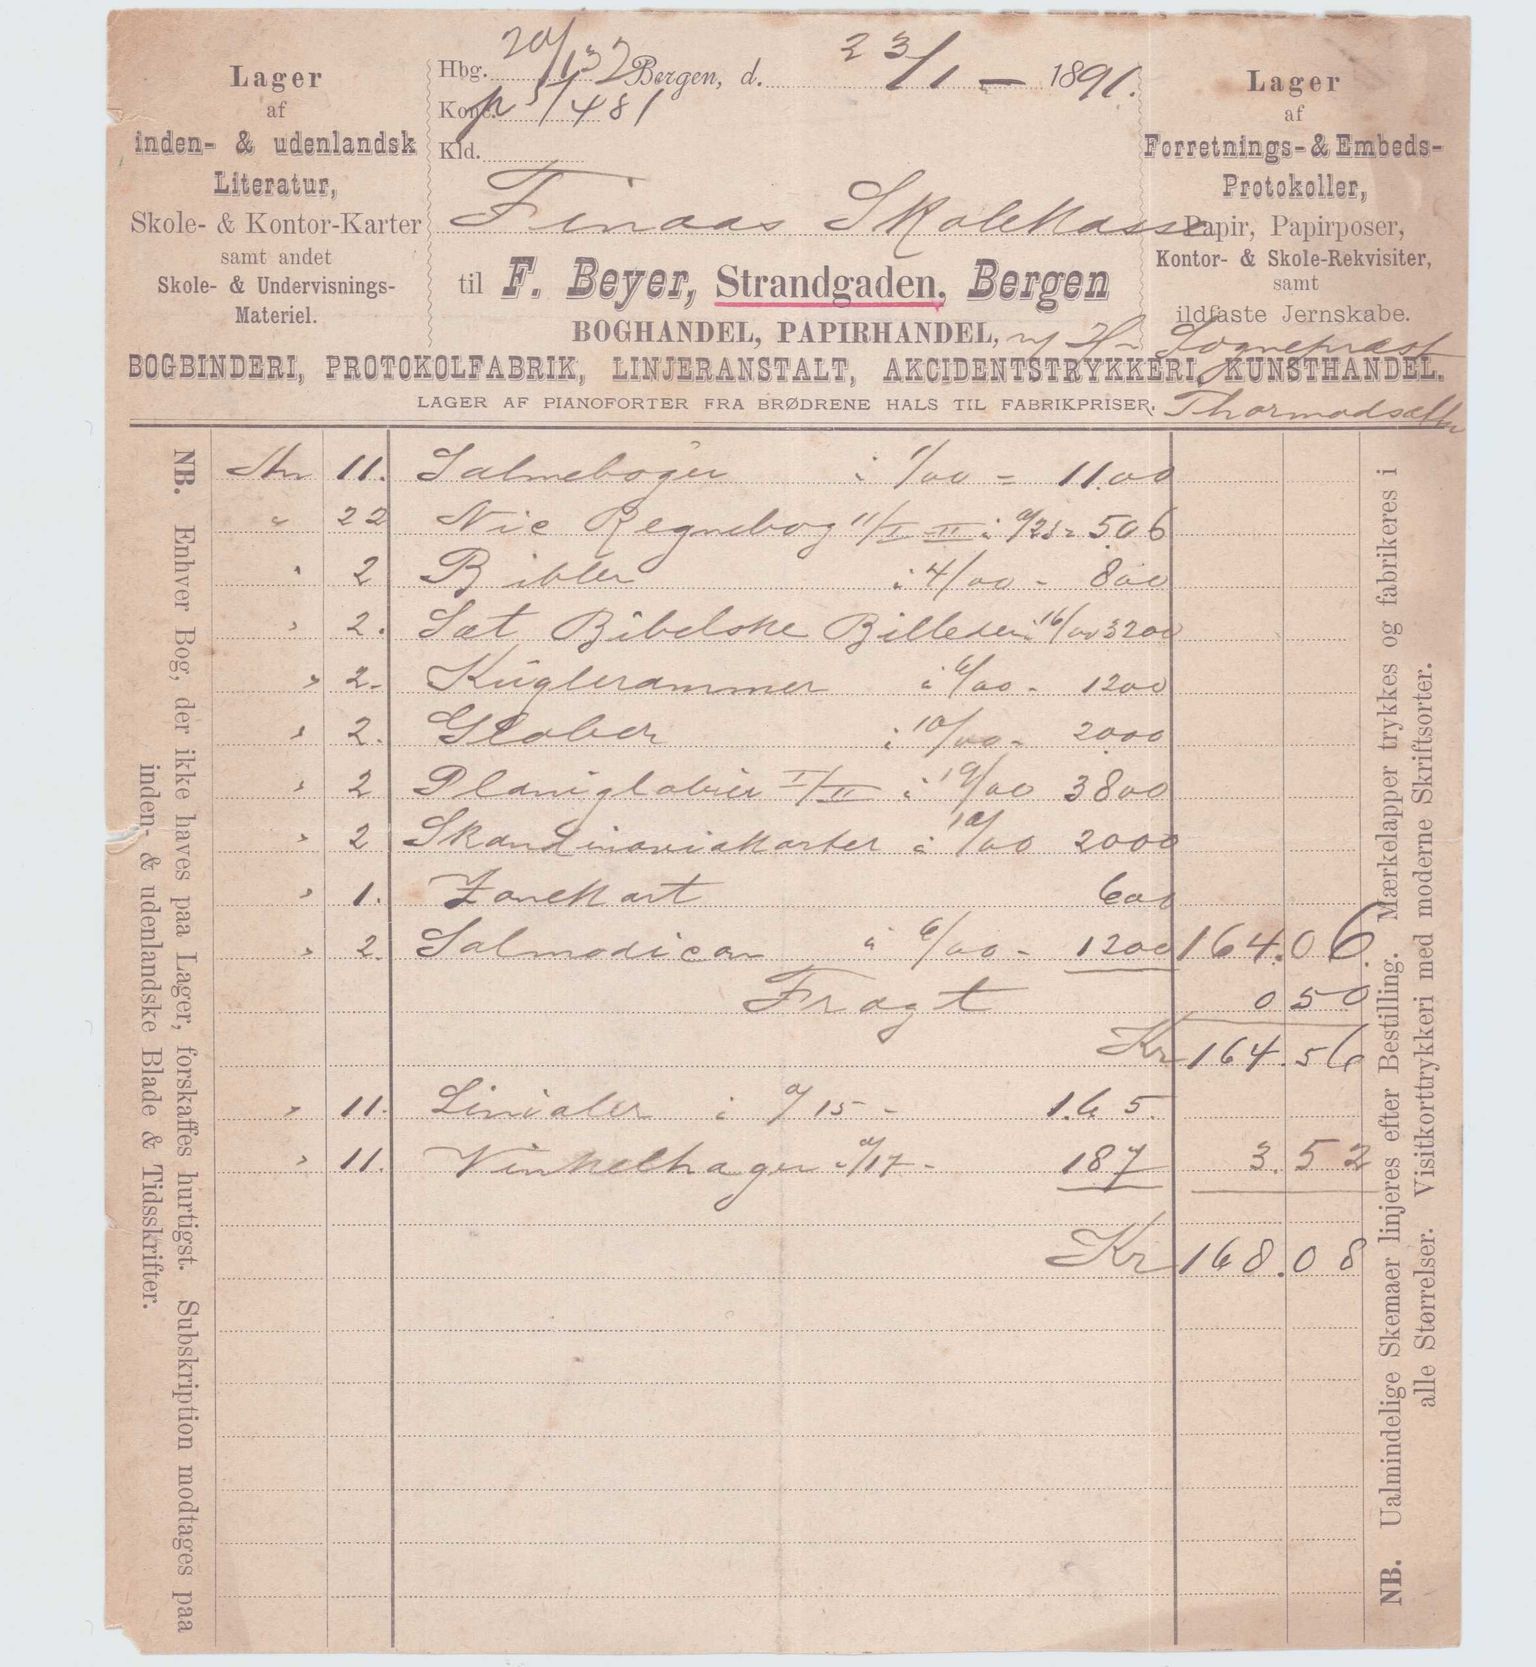 Lager
af
inden- & udenlandsk
Literatur,
Skole- & Kontor-Karter
samt andet
Skole- & Undervisnings-
Materiel.
Hbg. 20/132 Bergen, d. 23/1 — 1891.
Kont. p 5/481
Kld.
Finaas Skolekasse
til F. Beyer, Strandgaden, Bergen
BOGHANDEL, PAPIRHANDEL, v/ Hr Sognepræst
Lager
af
Forretnings- & Embeds-
Protokoller,
Papir, Papirposer,
Kontor- & Skole-Rekvisiter,
samt
ildfaste Jernskabe.
BOGBINDERI, PROTOKOLFABRIK, LINJERANSTALT, AKCIDENTSTRYKKERI, KUNSTHANDEL.
LAGER AF PIANOFORTER FRA BRØDRENE HALS TIL FABRIKPRISER. Thormodsæther
11. Salmebøger à 1/00 = 11.00
" 22 Nic Regnebog 11/I-II à 0/23 = 5.06
" 2 Bibler à 4/00 - 800
" 2. Sæt Bibelske Billeder 16/00 3200
" 2. Kuglerammer à 6/00 - 1200
" 2. Glober à 10/00 - 2000
" 2 Planiglobier I/II à 19/00 3800
" 2 Skandinaviakarter à 10/00 2000
" 1. Zonekart 600
" 2. Salmodicon à 6/00 - 1200 164.06
Fragt 0 50
Kr 164.56
" 11. Linialer à 0/15 - 1.65.
" 11. Vinkelhager à 0/17 - 187 3.52
Kr 168.08
NB. Enhver Bog, der ikke haves paa Lager, forskaffes hurtigst. Subskription modtages paa
inden- & udenlandske Blade & Tidsskrifter.
NB. Ualmindelige Skemaer linjeres efter Bestilling. Mærkelapper trykkes og fabrikeres i
alle Størrelser. Visitkorttrykkeri med moderne Skriftsorter.